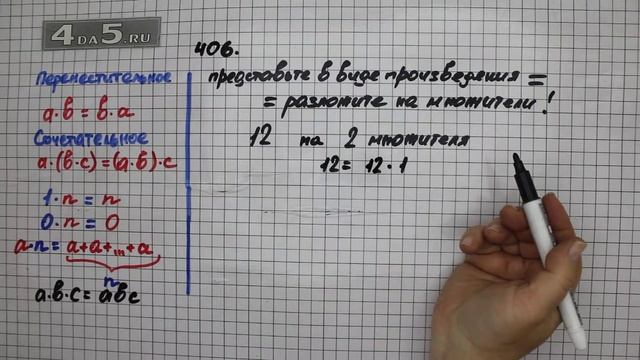 4DA5.RU
Переместительное
a·b = b·a
Сочетательное
a·(b·c)=(a·b)·c
1·n = n
0·n = 0
a·n = a+a+...+a
n
a·b·c = abc
406.
представьте в виде произведения =
= разложите на множители!
12 на 2 множителя
12 = 12·1